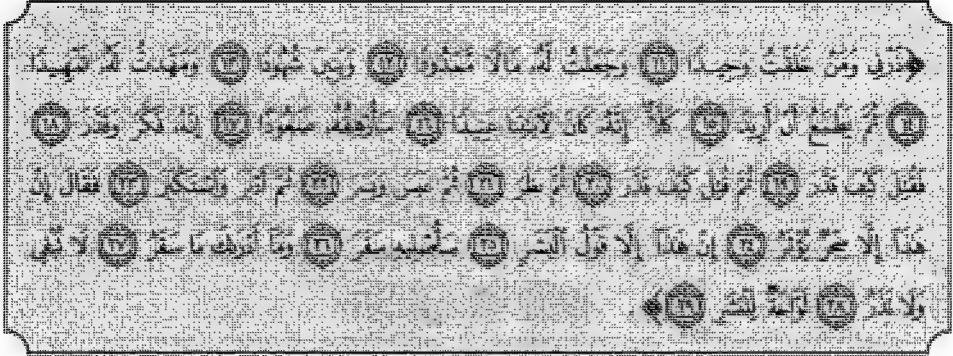 ﴿ذَرْنِي وَمَنْ خَلَقْتُ وَحِيدًا ﴿١١﴾ وَجَعَلْتُ لَهُ مَالًا مَّمْدُودًا ﴿١٢﴾ وَبَنِينَ شُهُودًا ﴿١٣﴾ وَمَهَّدتُّ لَهُ تَمْهِيدًا
﴿١٤﴾ ثُمَّ يَطْمَعُ أَنْ أَزِيدَ ﴿١٥﴾ كَلَّا إِنَّهُ كَانَ لِآيَاتِنَا عَنِيدًا ﴿١٦﴾ سَأُرْهِقُهُ صَعُودًا ﴿١٧﴾ إِنَّهُ فَكَّرَ وَقَدَّرَ ﴿١٨﴾
فَقُتِلَ كَيْفَ قَدَّرَ ﴿١٩﴾ ثُمَّ قُتِلَ كَيْفَ قَدَّرَ ﴿٢٠﴾ ثُمَّ نَظَرَ ﴿٢١﴾ ثُمَّ عَبَسَ وَبَسَرَ ﴿٢٢﴾ ثُمَّ أَدْبَرَ وَاسْتَكْبَرَ ﴿٢٣﴾ فَقَالَ إِنْ
هَٰذَا إِلَّا سِحْرٌ يُؤْثَرُ ﴿٢٤﴾ إِنْ هَٰذَا إِلَّا قَوْلُ الْبَشَرِ ﴿٢٥﴾ سَأُصْلِيهِ سَقَرَ ﴿٢٦﴾ وَمَا أَدْرَاكَ مَا سَقَرُ ﴿٢٧﴾ لَا تُبْقِي
وَلَا تَذَرُ ﴿٢٨﴾ لَوَّاحَةٌ لِّلْبَشَرِ ﴿٢٩﴾﴾